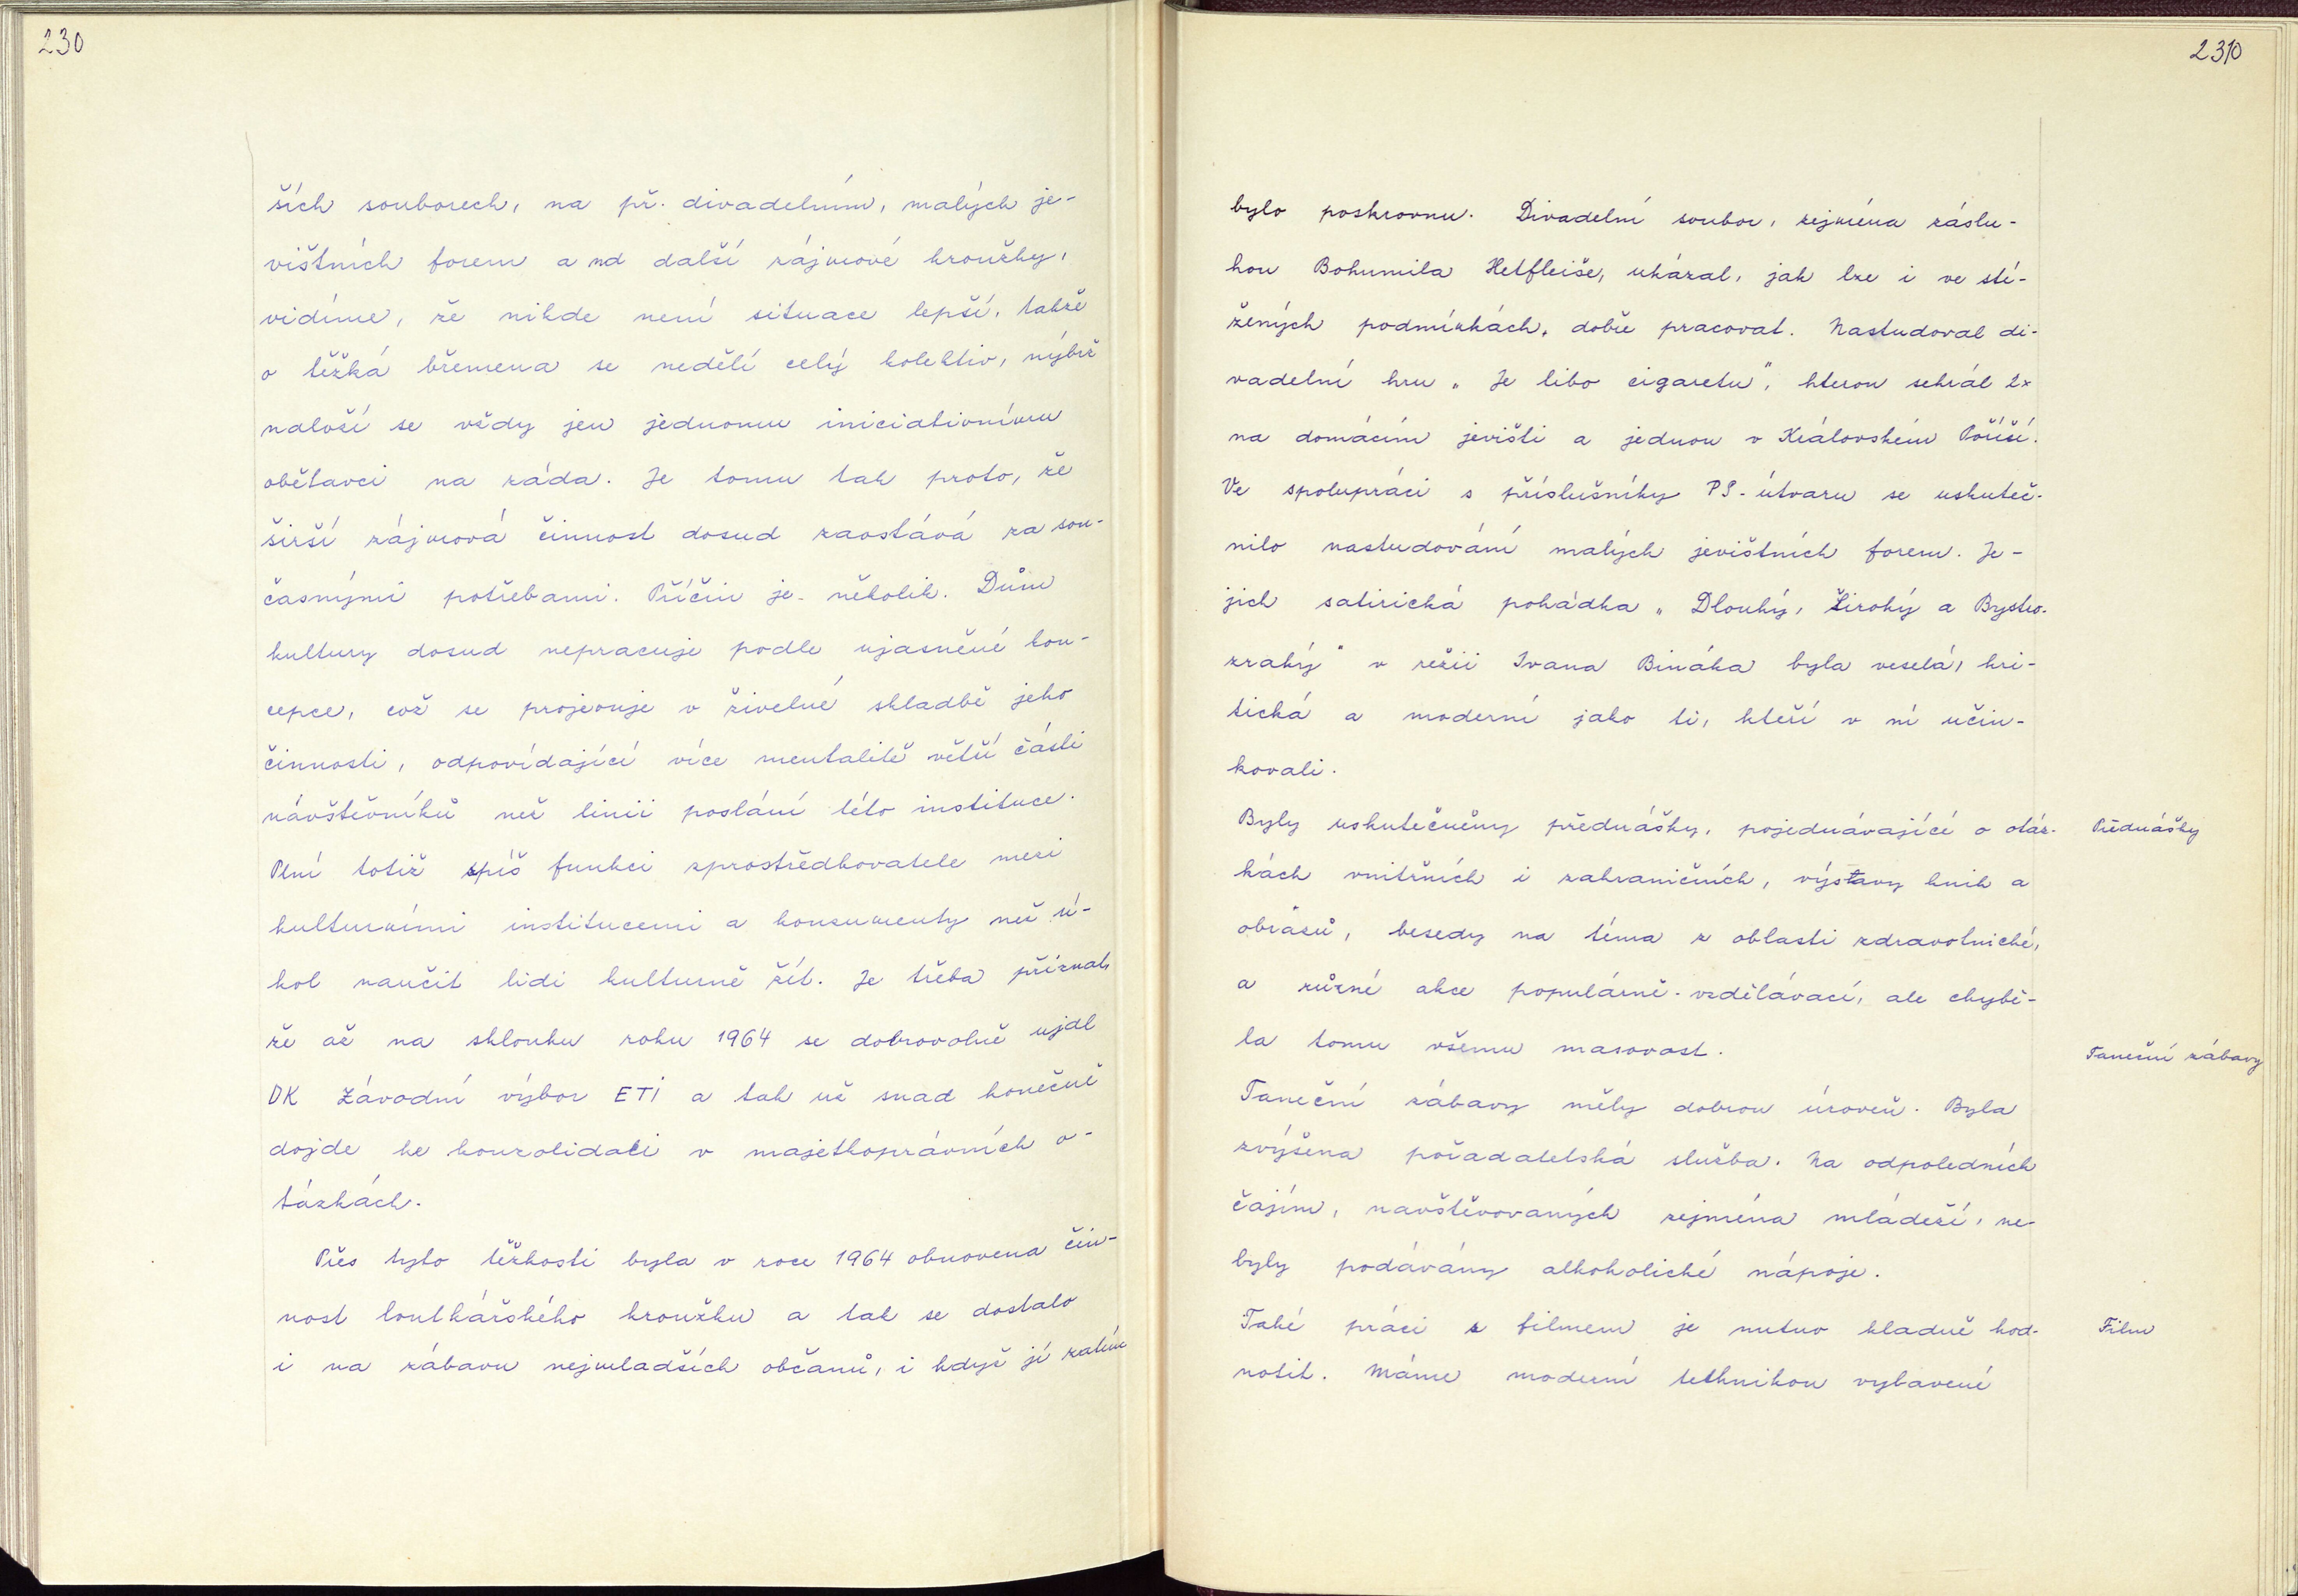 230
ších souborech, na př. divadelním, malých je-
vištních forem a na další zájmové kroužky,
vidíme, že nikde není situace lepší, takže
o těžká břemena se nedělí celý kolektiv, nýbrž
naloží se vždy jen jednomu iniciativnímu
obětavci na záda. Je tomu tak proto, že
širší zájmová činnost dosud zaostává za sou-
časnými potřebami. Příčin je několik. Dům
kultury dosud nepracuje podle ujasněné kon-
cepce, což se projevuje v živelné skladbě jeho
činnosti, odpovídající více mentalitě větší části
návštěvníků než linii poslání této instituce.
Plní totiž spíš funkci zprostředkovatele mezi
kulturními institucemi a konsumenty než ú-
kol naučit lidi kulturně žít. Je třeba přiznat
že až na sklonku roku 1964 se dobrovolně ujal
DK Závodní výbor ETI a tak už snad konečně
dojde ke konzolidaci v majetkoprávních o-
tázkách.
Přes tyto těžkosti byla v roce 1964 obnovena čin-
nost loutkářského kroužku a tak se dostalo
i na zábavu nejmladších občanů, i když jí zatím
2310
bylo poskrovnu. Divadelní soubor, zejména záslu-
hou Bohumila Hetfleiše, ukázal, jak lze i ve stí-
žených podmínkách, dobře pracovat. Nastudoval di-
vadelní hru „Je libo cigaretu", kterou sehrál 2x
na domácím jevišti a jednou v Královském Poříčí.
Ve spolupráci s příslušníky PS-útvaru se uskuteč-
nilo nastudování malých jevištních forem. Je-
jich satirická pohádka „Dlouhý, Široký a Bystro-
zraký" v režii Ivana Bináka byla veselá, kri-
tická a moderní jako ti, kteří v ní účin-
kovali.
Byly uskutečněny přednášky, pojednávající o otáz-
Přednášky
kách vnitřních i zahraničních, výstavy knih a
obrazů, besedy na téma z oblasti zdravotnické,
a různé akce populárně-vzdělávací, ale chybě-
la tomu všemu masovost.
Taneční zábavy
Taneční zábavy měly dobrou úroveň. Byla
zvýšena pořadatelská služba. Na odpoledních
čajím, navštěvovaných zejména mládeží, ne-
byly podávány alkoholické nápoje.
Také práci s filmem je nutno kladně hod-
Film
notit. Máme moderní technikou vybavené